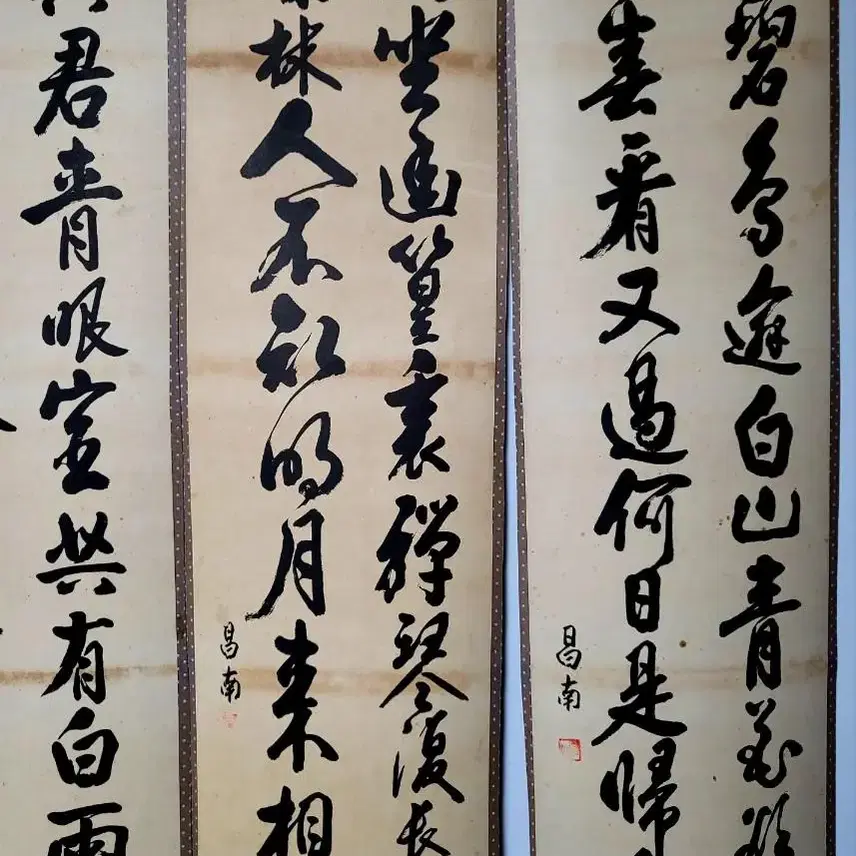 碧鳥逾白山青花欲
春看又過何日是歸
昌南
坐幽篁裏彈琴復長
林人不知明月來相
昌南
君青眼共有白